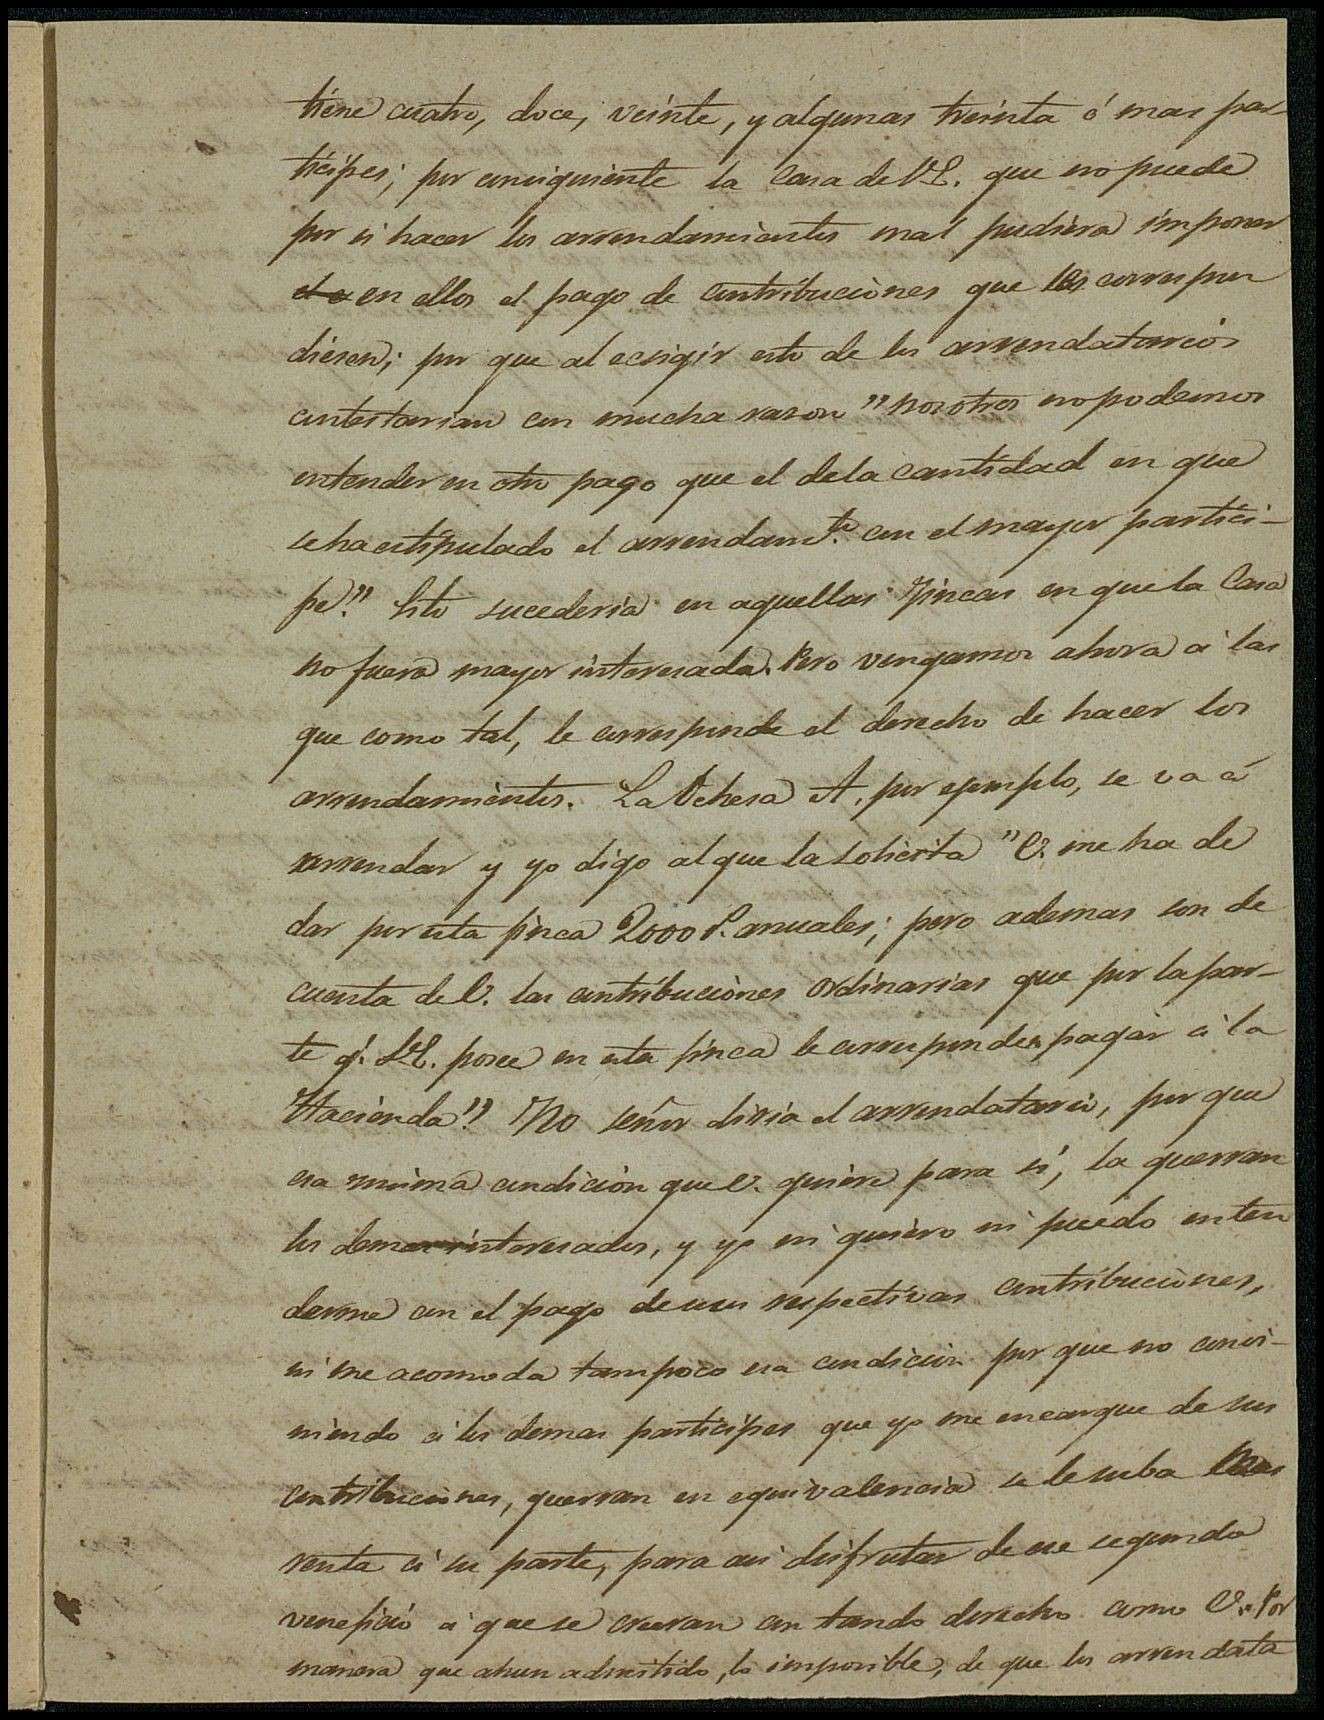 tiene cuatro, doce, veinte, y algunas treinta ó mas par-
ticipes; por consiguiente la Casa de V.E. que no puede
por si hacer los arrendamientos mal pudiera imponer
en ellos el pago de contribuciones que les correspon
diesen; por que al ecsigir esto de los arrendatarios
contestarian con mucha rason "nosotros no podemos
entender en otro pago que el dela cantidad en que
se ha estipulado el arrendamto. con el mayor partici-
pe." Esto sucederia en aquellas Fincas en que la Casa
no fuera mayor interesada. Pero vengamos ahora a las
que como tal, le corresponde el derecho de hacer los
arrendamientos. La Dehesa A, por ejemplo, se va á
arrendar y yo digo al que la solicita "V. me ha de
dar por esta finca 2000 r. anuales; pero ademas son de
cuenta de V. las contribuciones ordinarias que por la par-
te q. S.E. posee en esta finca le corresponden pagar á la
Hacienda" No señor diria el arrendatario, por que
esa misma condicion que V. quiere para sí, la querran
los demas interesados, y yo ni quiero ni puedo enten
derme con el pago de sus respectivas contribuciones,
ni me acomoda tampoco esa condicion por que no convi-
niendo á los demas participes que yo me encargue de sus
contribuciones, querran en equivalencia se le suba mas
renta á su parte, para asi disfrutar de ese segundo
veneficio á que se creeran con tando derecho como V. Por
manera que ahun admitido, lo imposible, de que los arrendata